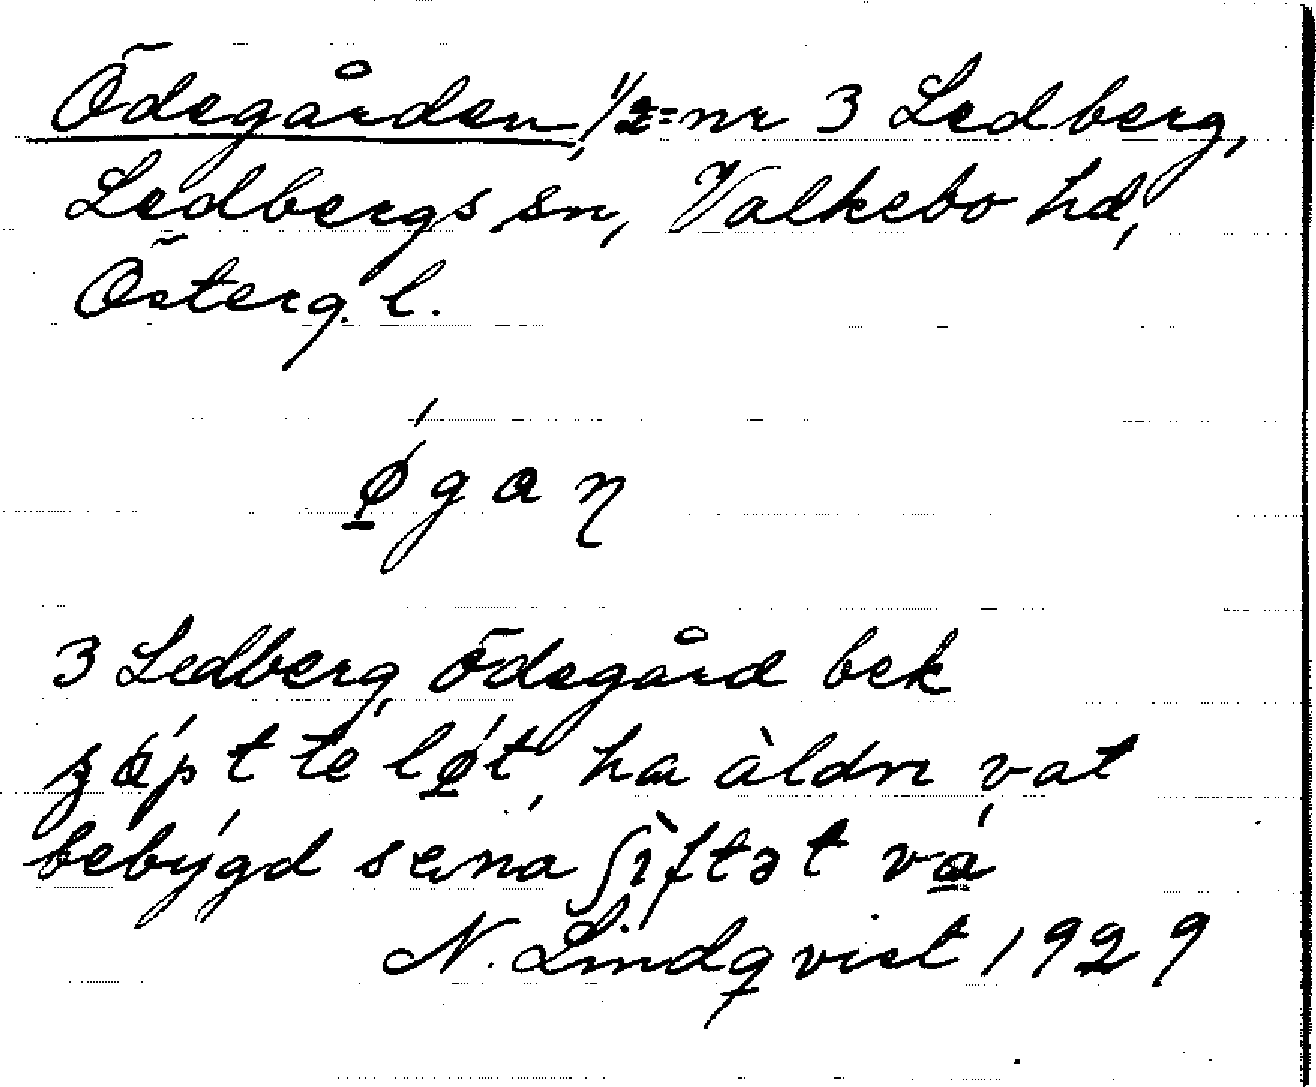 Ödegården, 1/2 nr 3 Ledberg,
Ledbergs sn, Valkebo hd,
Österg. l.
ǿgaɳ
3 Ledberg, Ödegård bek
te lǿt, ha àldri vat
bebýgd sena ʃìftət vá
N. Lindqvist 1929